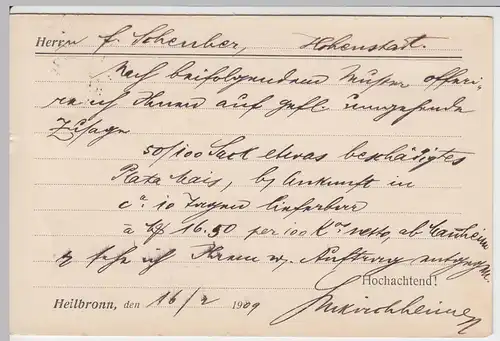 Herrn F. Scheuber, Hohenstadt.
Nach beifolgendem Muster offeri-
re ich Ihnen auf gefl. umgehende
Zusage
50/100 Sack etwas beschädigtes
Plata Mais, bz Ankunft in
ca 10 Tagen lieferbar
à M 16.50 per 100 Kos netto, ab Manheim
& sehe ich Ihrem w. Auftrag entgegen.
Hochachtend!
Heilbronn, den 16/2 1909